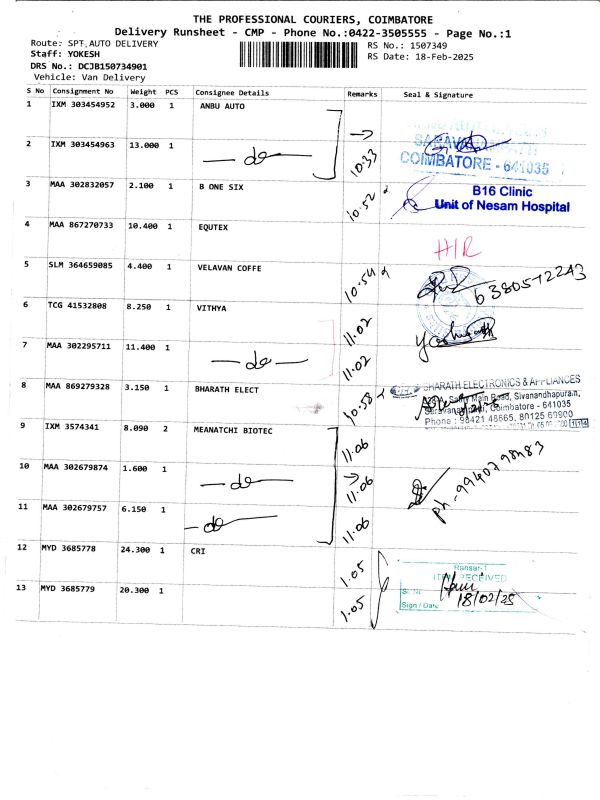 THE PROFESSIONAL COURIERS, COIMBATORE
Delivery Runsheet - CMP - Phone No.:0422-3505555 - Page No.:1
Route: SPT AUTO DELIVERY
RS No.: 1507349
Staff: YOKESH
RS Date: 18-Feb-2025
DRS No.: DCJB150734901
Vehicle: Van Delivery
S No Consignment No Weight PCS Consignee Details Remarks Seal & Signature
1 IXM 303454952 3.000 1 ANBU AUTO
2 IXM 303454963 13.000 1 — do — 10:33
COIMBATORE - 641035
3 MAA 302832057 2.100 1 B ONE SIX 10:52
B16 Clinic
Unit of Nesam Hospital
4 MAA 867270733 10.400 1 EQUTEX
H/R
5 SLM 364659085 4.400 1 VELAVAN COFFE 10:54
6380572243
6 TCG 41532808 8.250 1 VITHYA 11.02
7 MAA 302295711 11.400 1 — do — 11.02
8 MAA 869279328 3.150 1 BHARATH ELECT 10:58
BHARATH ELECTRONICS & APPLIANCES
Main Road, Sivanandhapuram,
Saravanampatti, Coimbatore - 641035
Phone : 98421 46665, 80125 69900
9 IXM 3574341 8.090 2 MEANATCHI BIOTEC 11:06
10 MAA 302679874 1.600 1 — do — 11:06
11 MAA 302679757 6.150 1 — do — 11:06
12 MYD 3685778 24.300 1 CRI 1.05
ITEM RECEIVED
13 MYD 3685779 20.300 1 1.05
Sign / Date 18/02/25